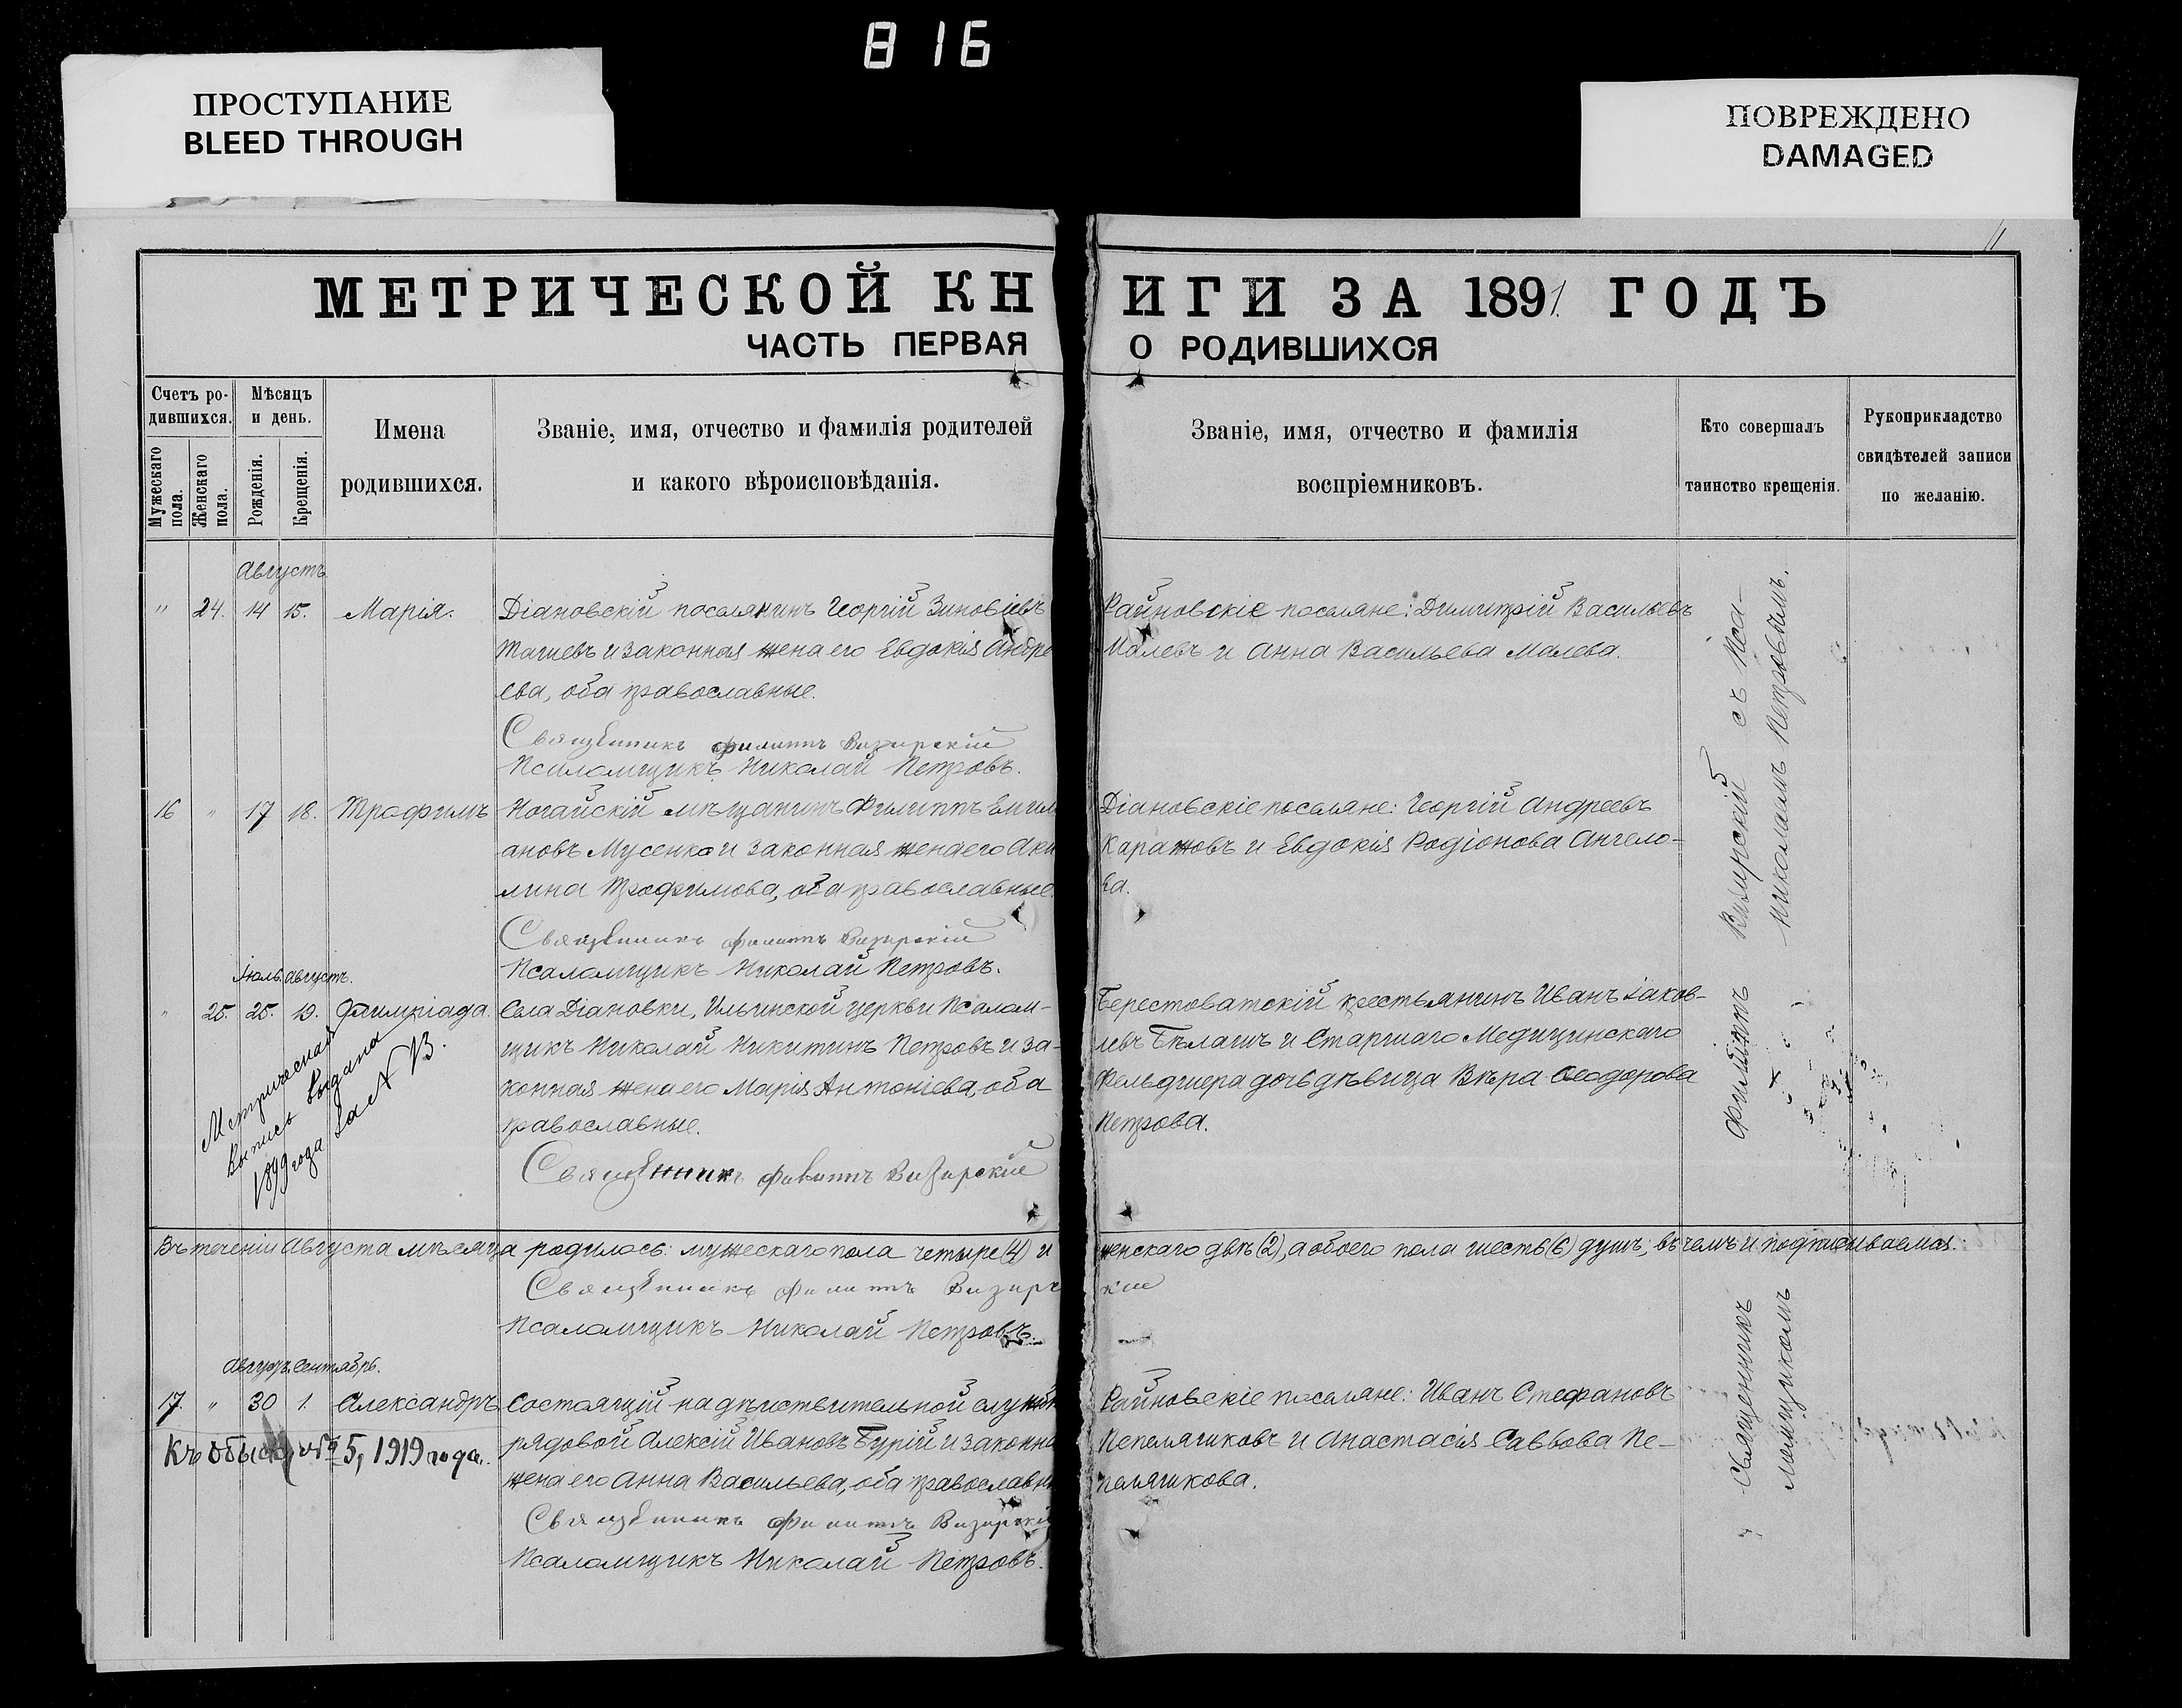 816
ПРОСТУПАНИЕ
BLEED THROUGH
ПОВРЕЖДЕНО
DAMAGED
11
МЕТРИЧЕСКОЙ КНИГИ ЗА 1891 ГОДЪ
ЧАСТЬ ПЕРВАЯ О РОДИВШИХСЯ
Счетъ ро-
дившихся.
Мужескаго пола.
Женскаго пола.
Мѣсяцъ
и день.
Рожденія.
Крещенія.
Имена
родившихся.
Званіе, имя, отчество и фамилія родителей
и какого вѣроисповѣданія.
Званіе, имя, отчество и фамилія
воспріемниковъ.
Кто совершалъ
таинство крещенія.
Рукоприкладство
свидѣтелей записи
по желанію.
Августъ
" 24. 14 15. Марія.
Діановскій поселянинъ Георгій Зиновіевъ
Тагиевъ и законная жена его Евдокія Андре
ева, оба православные.
Священникъ Филиппъ Визирскій
Псаломщикъ Николай Петровъ.
Райновскіе поселяне: Димитрій Васильевъ
Малевъ и Анна Васильева Малева.
16 " 17 18. Трофимъ
Ногайскій мѣщанинъ Филиппъ Емили
ановъ Мусенко и законная жена его Аки
лина Трофимова, оба православные.
Священникъ Филиппъ Визирскій
Псаломщикъ Николай Петровъ.
Діановскіе поселяне: Георгій Андреевъ
Каражовъ и Евдокія Родіонова Ангело-
ва.
Іюль. Августъ.
" 25. 25. 19. Олимпіада.
Села Діановки, Ильинской церкви Псалом-
щикъ Николай Никитинъ Петровъ и за-
конная жена его Марія Антоніева, оба
православные.
Священникъ Филиппъ Визирскій
Берестоватскій крестьянинъ Иванъ Іаков-
левъ Бѣлашъ и Старшаго Медицинскаго
Фельдшера дочь дѣвица Вѣра Ѳеодорова
Петрова.
Метрическая
выпись выдана
1899 года за № 13.
Въ теченіи Августа мѣсяца родилось: мужескаго пола четыре (4) и женскаго двѣ (2), а обоего пола шесть (6) душъ; въ чемъ и подписываемся:
Священникъ Филиппъ Визирскій
Псаломщикъ Николай Петровъ.
Августъ. Сентябрь.
17. " 30 1. Александръ
Состоящій на дѣйствительной службѣ
рядовой Алексій Ивановъ Бурій и законна
жена его Анна Васильева, оба православны
Священникъ Филиппъ Визирскій
Псаломщикъ Николай Петровъ.
Райновскіе поселяне: Иванъ Стефановъ
Пепелящиковъ и Анастасія Саввова Пе-
пелящикова.
Къ обыску № 5, 1919 года.
Священникъ Филиппъ Визирскій съ Пса-
ломщикомъ Николаемъ Петровымъ.